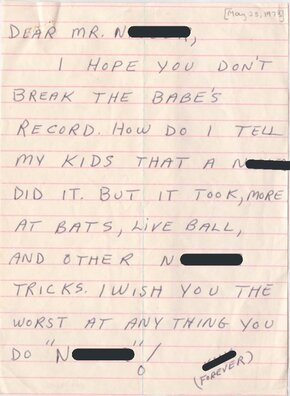 [May 25, 1973]
DEAR MR. N
I HOPE YOU DON'T
BREAK THE BABE'S
RECORD. HOW DO I TELL
MY KIDS THAT A N
DID IT. BUT IT TOOK, MORE
AT BATS, LIVE BALL,
AND OTHER N
TRICKS. I WISH YOU THE
WORST AT ANY THING YOU
DO "N "!
(FOREVER)